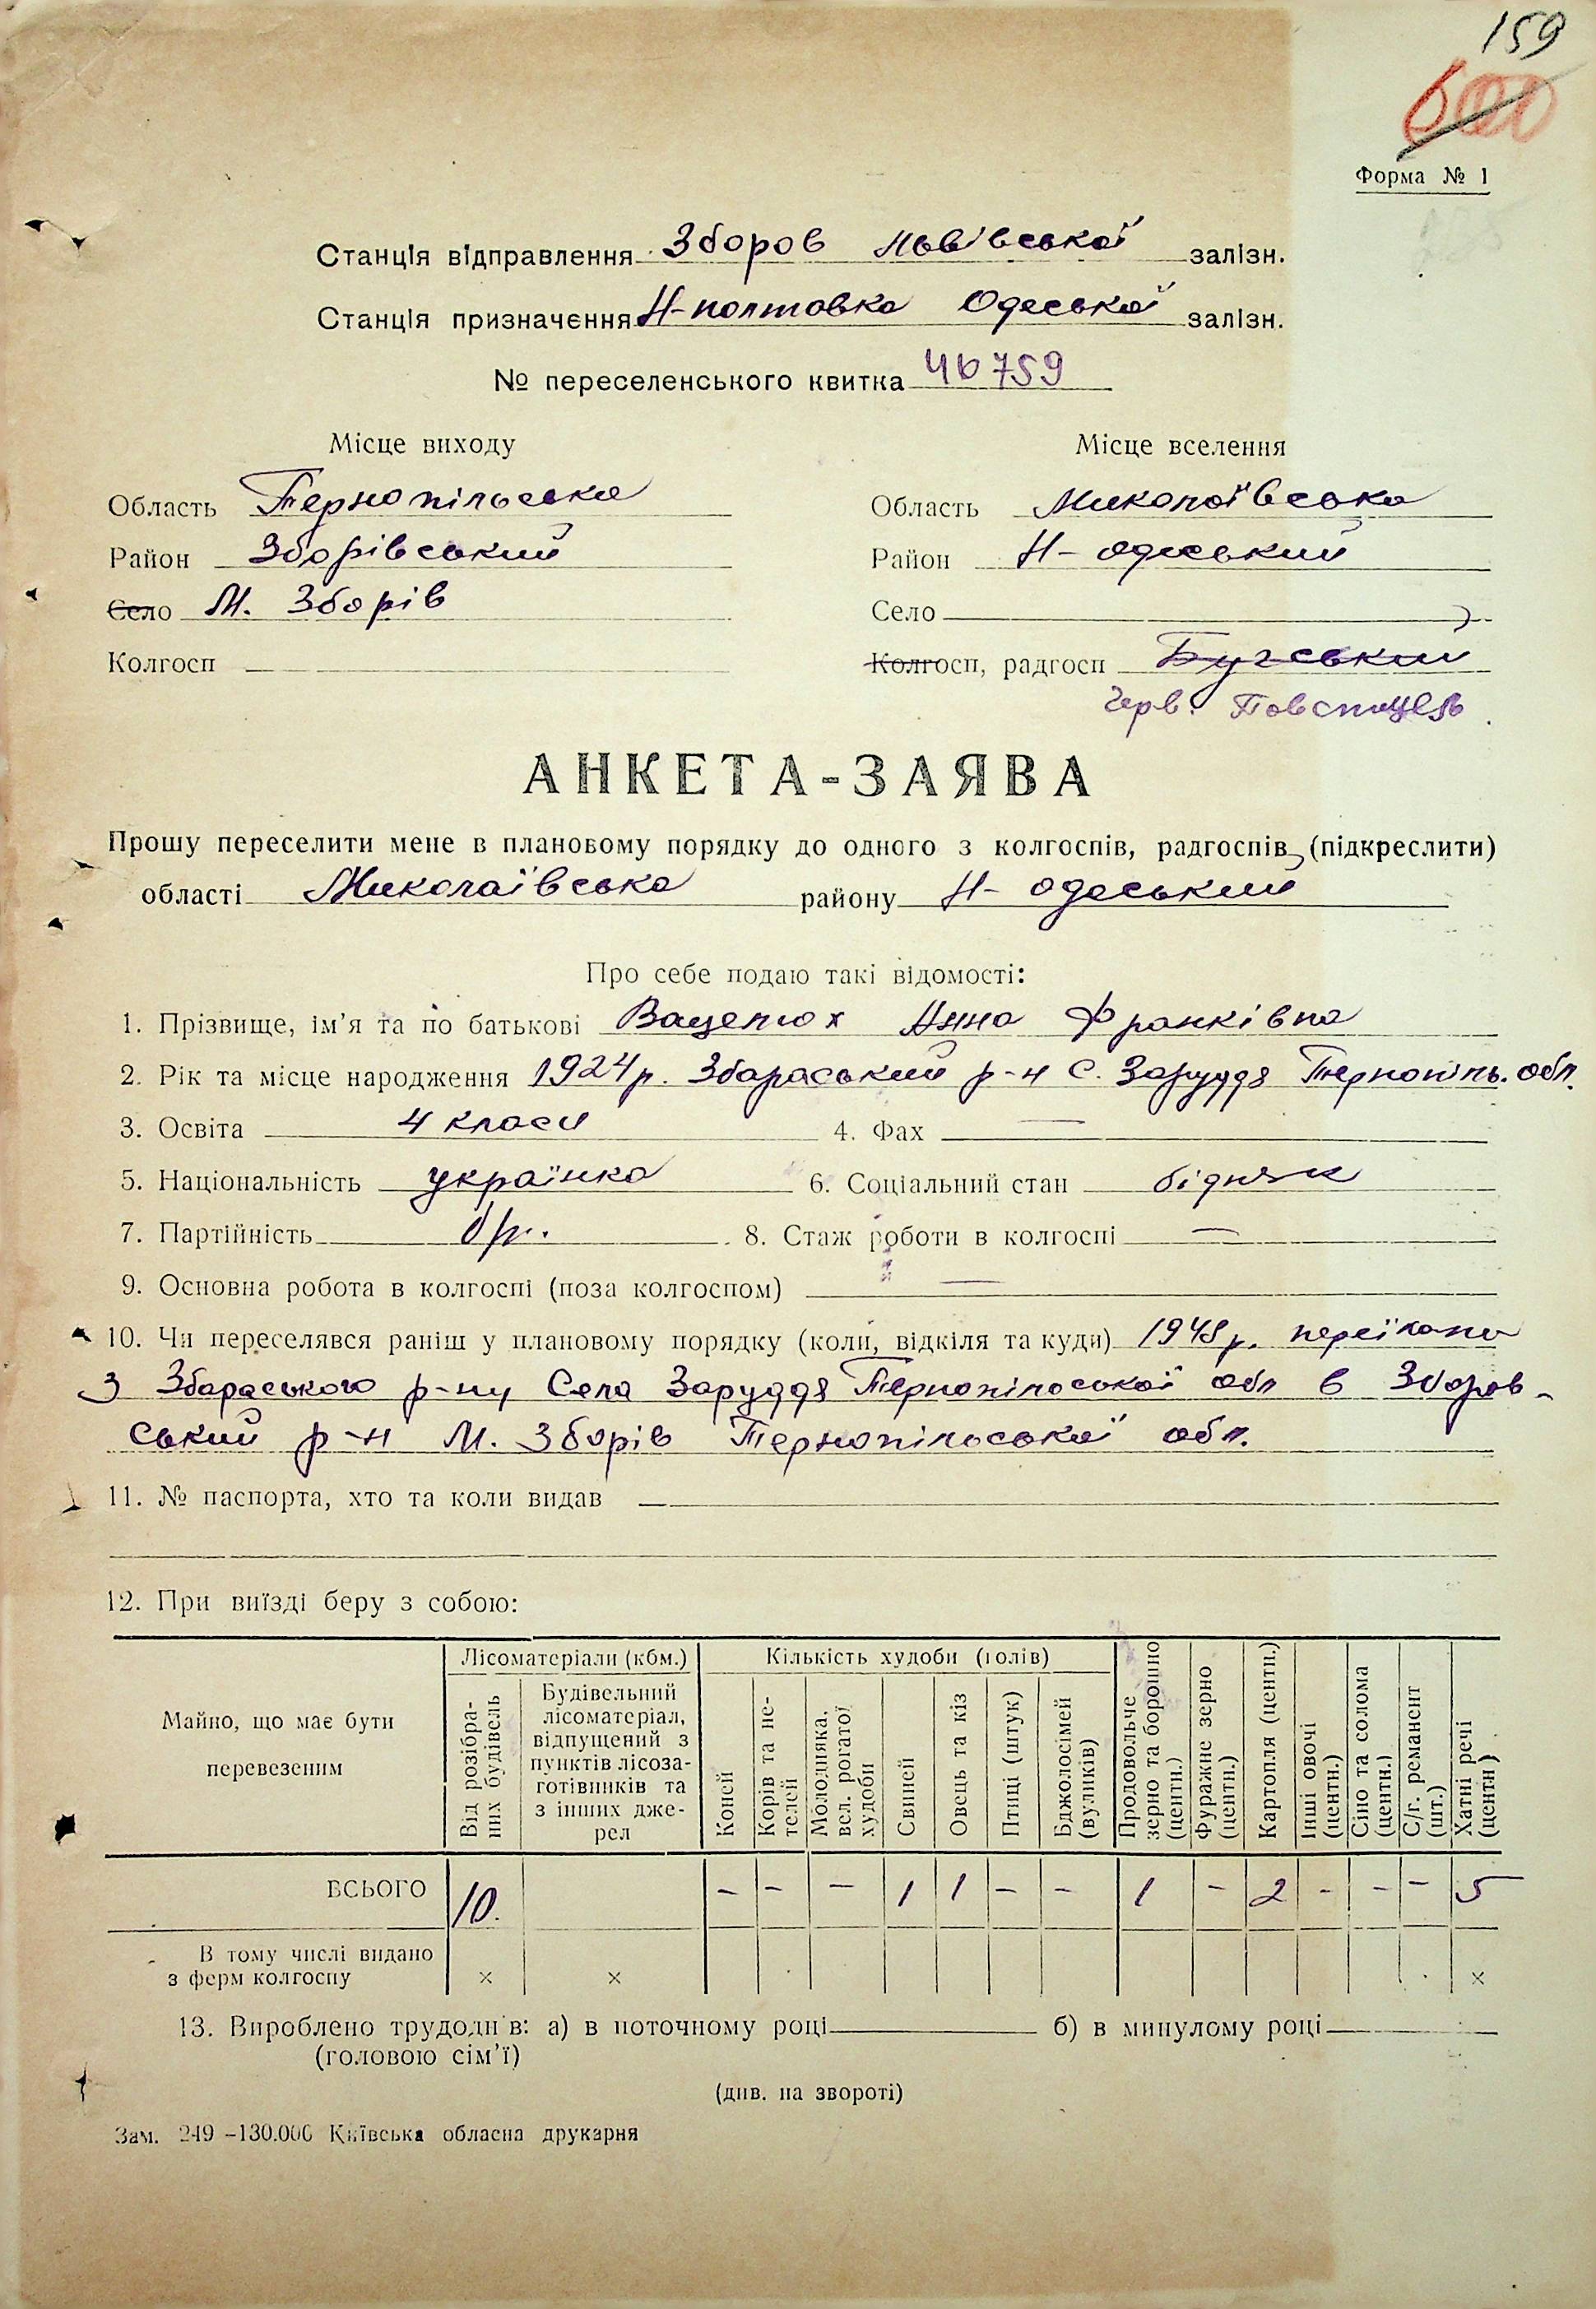 159
600
Форма № 1
Станція відправлення Зборов Львівської залізн.
Станція призначення Н-полтовка Одеської залізн.
№ переселенського квитка 46759
Місце виходу Місце вселення
Область Тернопільська Область Миколаївська
Район Зборівський Район Н-одеський
Село М. Зборів Село
Колгосп — Колгосп, радгосп Бугський
Черв. Повстанець
АНКЕТА-ЗАЯВА
Прошу переселити мене в плановому порядку до одного з колгоспів, радгоспів (підкреслити)
області Миколаївська району Н-одеський
Про себе подаю такі відомості:
1. Прізвище, ім’я та по батькові Вацетюх Анна Франківна
2. Рік та місце народження 1924 р. Збараський р-н С. Заруддя Тернопіль. обл.
3. Освіта 4 класи 4. Фах —
5. Національність українка 6. Соціальний стан бідняк
7. Партійність бп. 8. Стаж роботи в колгоспі —
9. Основна робота в колгоспі (поза колгоспом) —
10. Чи переселявся раніш у плановому порядку (коли, відкіля та куди) 1948 р. переїхала
З Збараського р-ну Села Заруддя Тернопільської обл в Зборов-
ський р-н М. Зборів Тернопільської обл.
11. № паспорта, хто та коли видав —
12. При виїзді беру з собою:
Майно, що має бути перевезеним
Лісоматеріали (кбм.)
Від розібраних будівель
Будівельний лісоматеріал, відпущений з пунктів лісозаготівників та з інших джерел
Кількість худоби (голів)
Коней
Корів та нетелей
Молодняка, вел. рогатої худоби
Свиней
Овець та кіз
Птиці (штук)
Бджолосімей (вуликів)
Продовольче зерно та борошно (центн.)
Фуражне зерно (центн.)
Картопля (центн.)
Інші овочі (центн.)
Сіно та солома (центн.)
С/г. реманент (шт.)
Хатні речі (центн)
ВСЬОГО 10. – – – 1 1 – – 1 – 2 - – – 5
В тому числі видано з ферм колгоспу × × ×
13. Вироблено трудоднів: а) в поточному році б) в минулому році
(головою сім’ї)
(див. на звороті)
Зам. 249 –130.000 Київська обласна друкарня